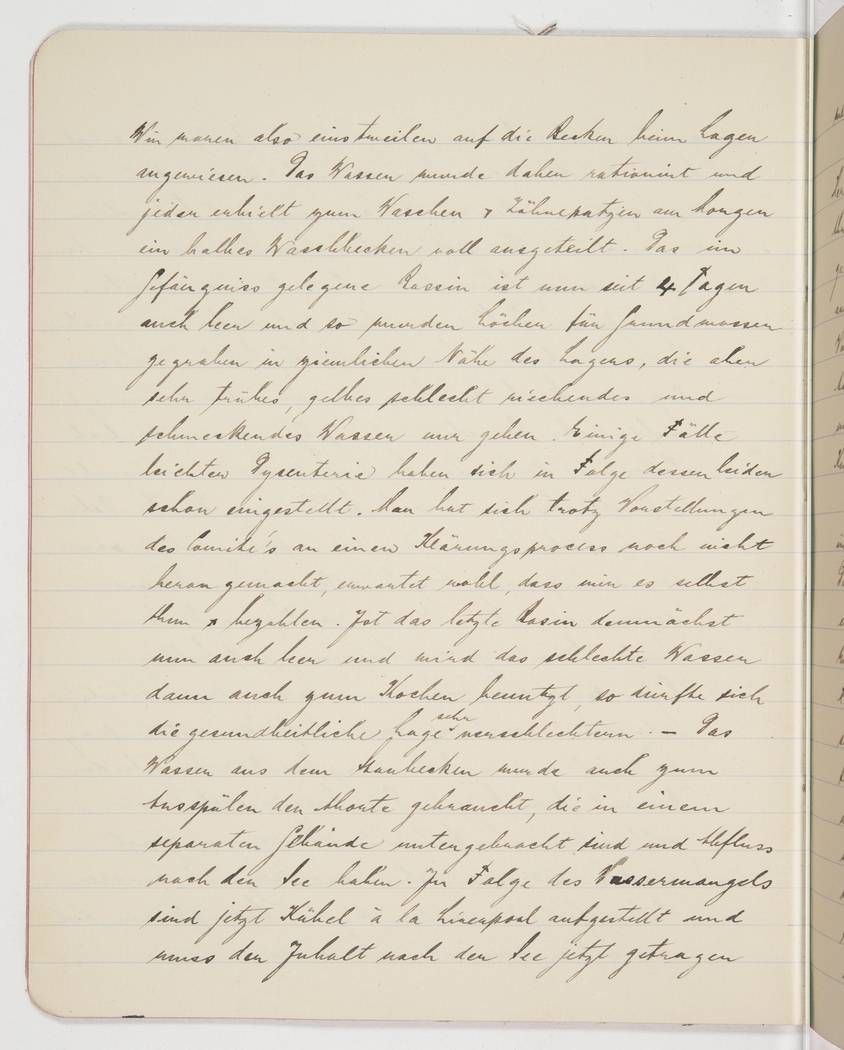 Wir waren also einstweilen auf die Becken beim Lager
angewiesen. Das Wasser wurde daher rationirt und
jeder erhielt zum Waschen & Zähneputzen am Morgen
ein halbes Waschbecken voll ausgeteilt. Das im
Gefängniss gelegene Bassin ist nun seit 4 Tagen
auch leer und so wurden Löcher für Grundwasser
gegraben in ziemlicher Nähe des Lagers, die aber
sehr trübes, gelbes schlecht riechendes und
schmeckendes Wasser nur geben. Einige Fälle
leichter Dysenterie haben sich in Folge dessen leider
schon eingestellt. Man hat sich trotz Vorstellungen
des Comité's an einen Klärungsprocess noch nicht
heran gemacht, erwartet wohl, dass wir es selbst
thun & bezahlen. Ist das letzte Basin demnächst
nun auch leer und wird das schlechte Wasser
dann auch zum Kochen benutzt, so dürfte sich
die gesundheitliche Lage sehr verschlechtern. — Das
Wasser aus dem Staubecken wurde auch zum
Ausspülen der Aborte gebraucht, die in einem
separaten Gebäude untergebracht sind und Abfluss
nach der See haben. In Folge des Wassermangels
sind jetzt Kübel à la Liverpool aufgestellt und
muss der Inhalt nach der See jetzt getragen